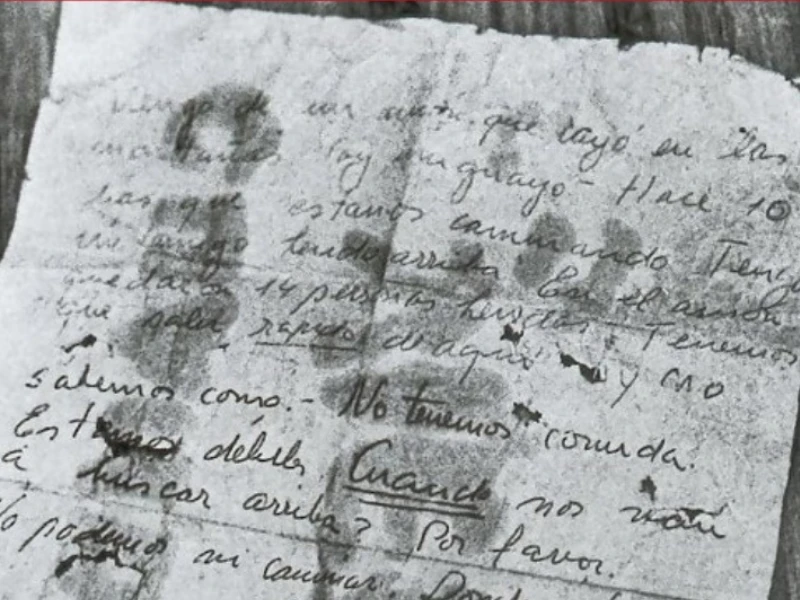 Vengo de un avión que cayó en las
montañas Soy uruguayo - Hace 10
días que estamos caminando Tengo
un amigo herido arriba. En el avión
quedaron 14 personas heridas. Tenemos
que salir rápido de aquí y no
sabemos como.- No tenemos comida.
Estamos débiles Cuando nos van
a buscar arriba? Por favor.
No podemos ni caminar.